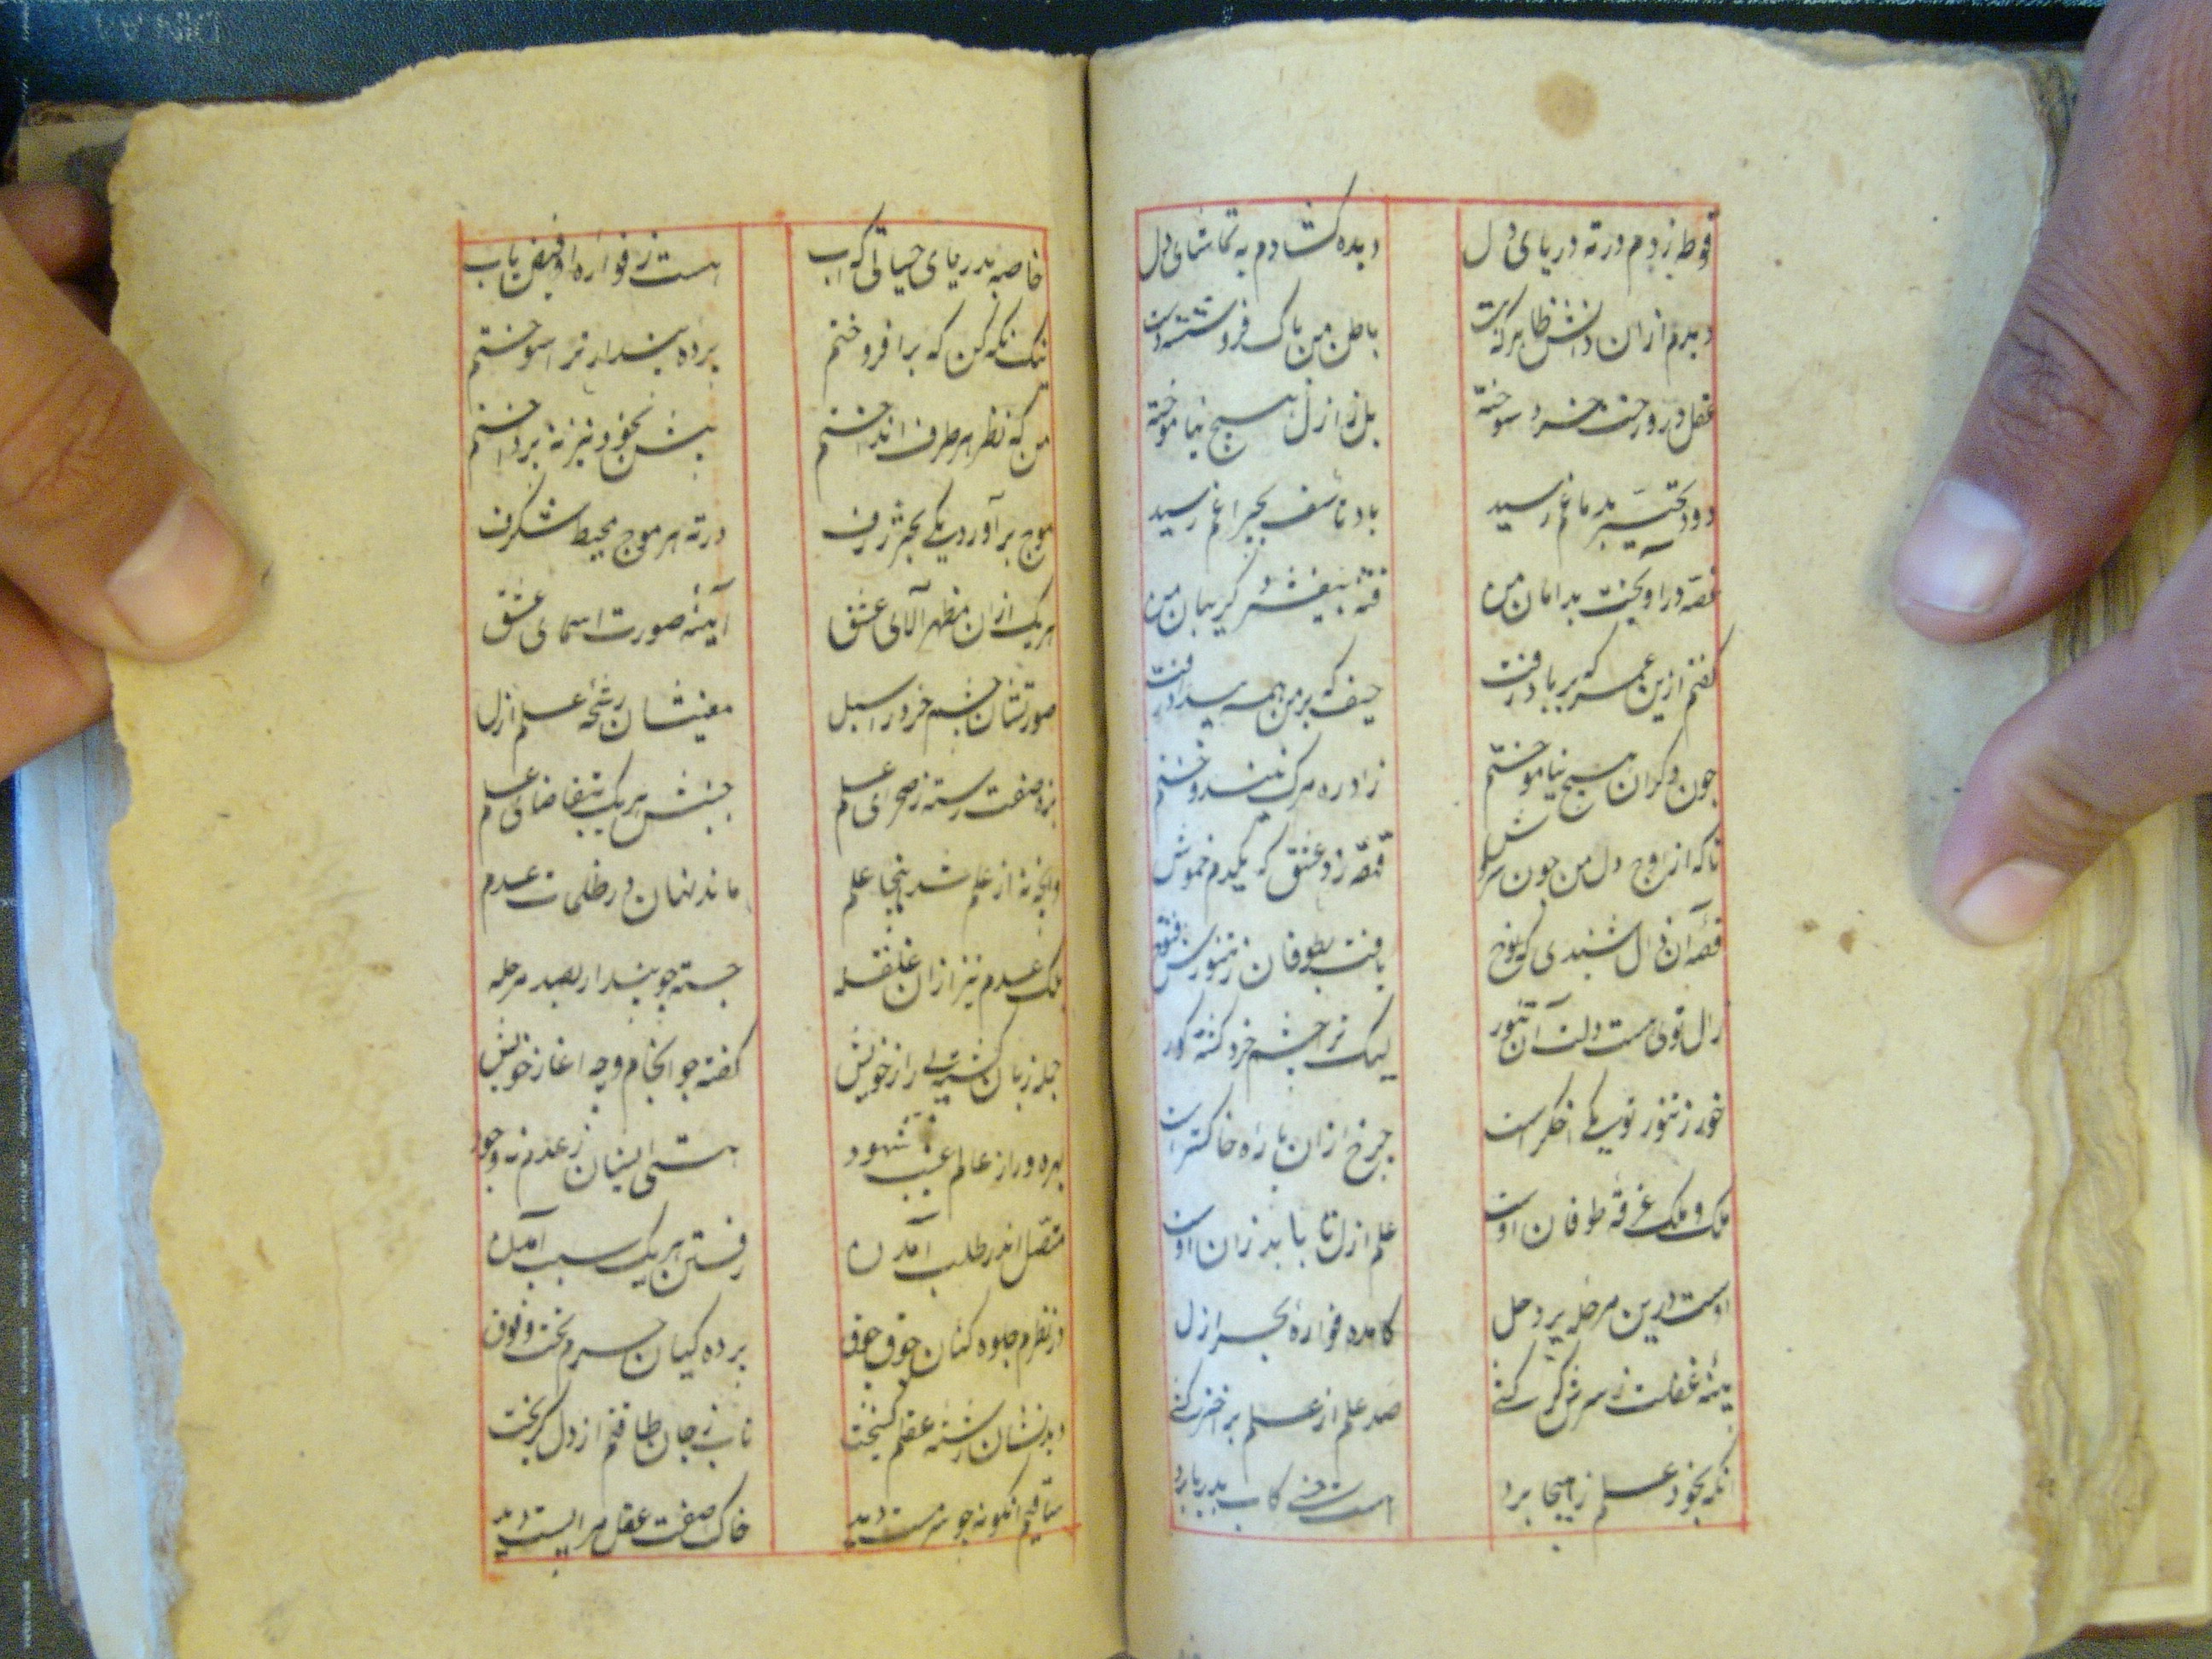 غوطه زدم در ته دریای دل
دیده گشادم به تماشای دل
دیدم ازان دانش ظاهر که هست
باطن من پاک فروشسته دست
عقل در و رخت خرد سوخته
یک ز ازل هیچ نیاموخته
دود تحیر بدماغم رسید
باد تاسف بچراغم رسید
غصه در آویخت بدامان من
فتنه بیفشرد گریبان من
گفتم ازین عمر که بر باد رفت
حیف که بر من همه بیداد رفت
چون دگران هیچ نیاموختم
زاد ره مرگ نیندوختم
تا که از اوج دل من چون سروش
قهقهه زد عشق که یکدم خموش
قصه آن زال شنیدی که نوح
یافت بطوفان ز تنورش فتوح
زال توی هست دلت آن تنور
لیک ترا چشم خرد گشته کور
خور ز تنور تو یکی اخگر است
چرخ ازان پاره خاکستر است
ملک و ملک غرقه طوفان اوست
علم ازل تا بابد زان اوست
اوست درین مرحله پر دحل
کامده فواره بحر ازل
پنبه غفلت ز سرش گر کنی
صد علم از علم برافراز کنی
آنکه بخود علم ز اینجا برد
است سخی کاب بدریا برد
خاصه بدریای حیاتی که آب
هست ز فواره او فیض یاب
نیک نگه کن که برافروختم
پرده پندار ترا سوختم
من که نظر هر طرف انداختم
بیش بخود نیز نه پرداختم
موج برآورد یکی بحر ژرف
در ته هر موج محیط شگرف
هر یک ازان مظهر آلای عشق
آیینه صورت اسمای عشق
صورتشان چشم خرد را سبل
معنیشان رشحه علم ازل
بزه صفت رسته ز صحرای علم
جنبش هر یک بتقاضای علم
وانچه نه از علم شد اینجا علم
ماند نهان در ظلمات عدم
ملک عدم نیز ازان غلغله
جسته چو پندار بصد مرحله
جمله زبان گشته پی راز خویش
گفته چو انجام و چه آغاز خویش
بهره ور از عالم غیب شهود
هستی ایشان ز عدم نه وجود
متصل اندر طلب آمدن
رفتن هر یک سبب آمدن
در نظرم جلوه کنان جوق جوق
پرده کیان حرم تحت و فوق
دیدنشان رشته عقلم گسیخت
تاب ز جان طاقتم از دل گریخت
ساقیم آنگونه چو سرمست دید
خاک صفت عقل مرا پست دید